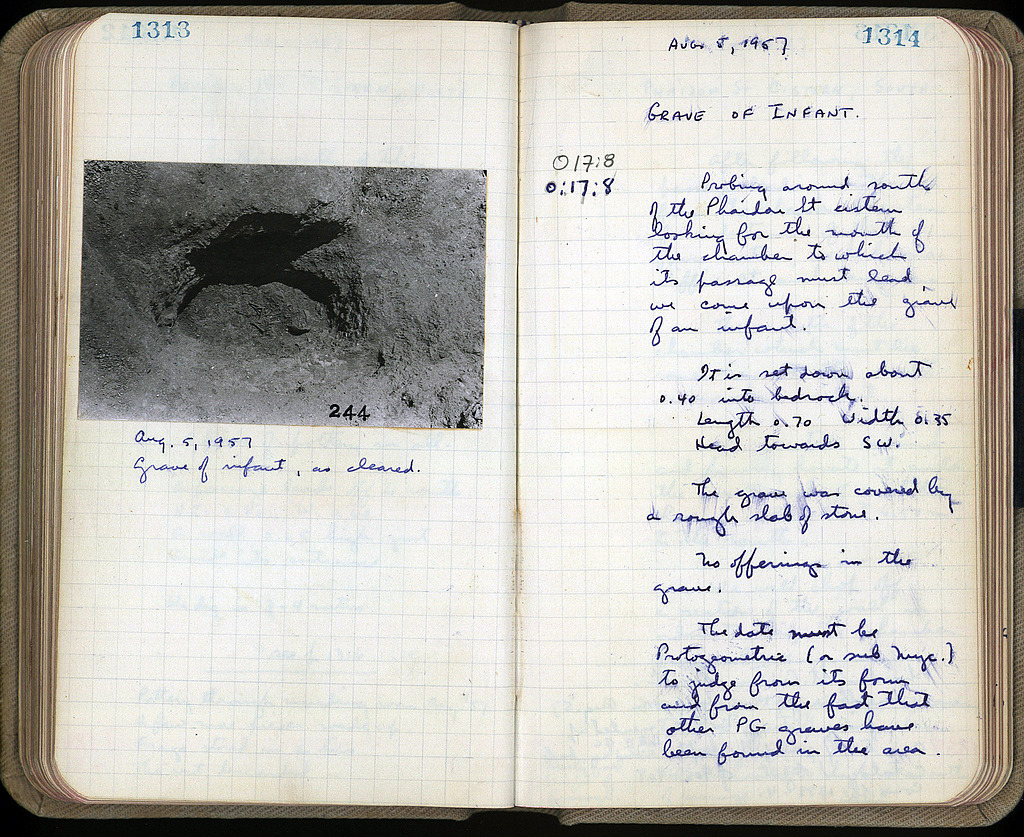 1313
244
Aug. 5, 1957
Grave of infant, as cleared.
1314
Aug 5, 1957
Grave of Infant.
O17:8
O:17:8
Probing around south
of the Phaidon St cistern
looking for the mouth of
the chamber to which
its passage must lead
we come upon the grave
of an infant.
It is set down about
0.40 into bedrock.
Length 0.70 width 0.35
Head towards SW.
The grave was covered by
a rough slab of stone.
No offerings in the
grave.
The date must be
Protogeometric (or sub Myc.)
to judge from its form
and from the fact that
other PG graves have
been found in the area.